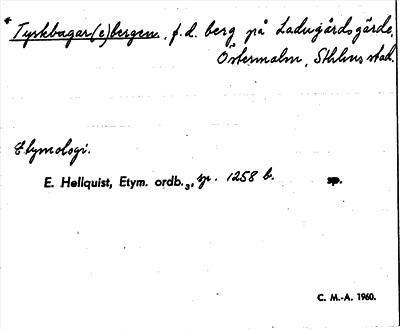 * Tyskbagar(e)bergen, f.d. berg på Ladugårdsgärde,
Östermalm, Sthlms stad.
Etymologi.
E. Hellquist, Etym. ordb.3, sp. 1258 b. sp.
C. M.-A. 1960.